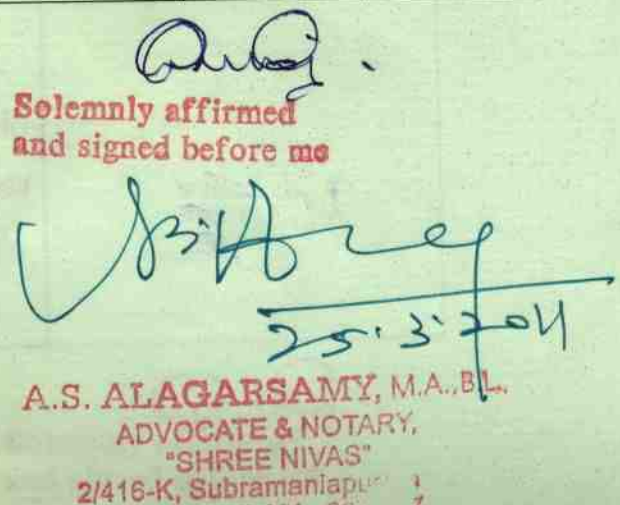 Solemnly affirmed
and signed before me
25.3.2011
A.S. ALAGARSAMY, M.A.,B.L.,
ADVOCATE & NOTARY,
"SHREE NIVAS"
2/416-K,